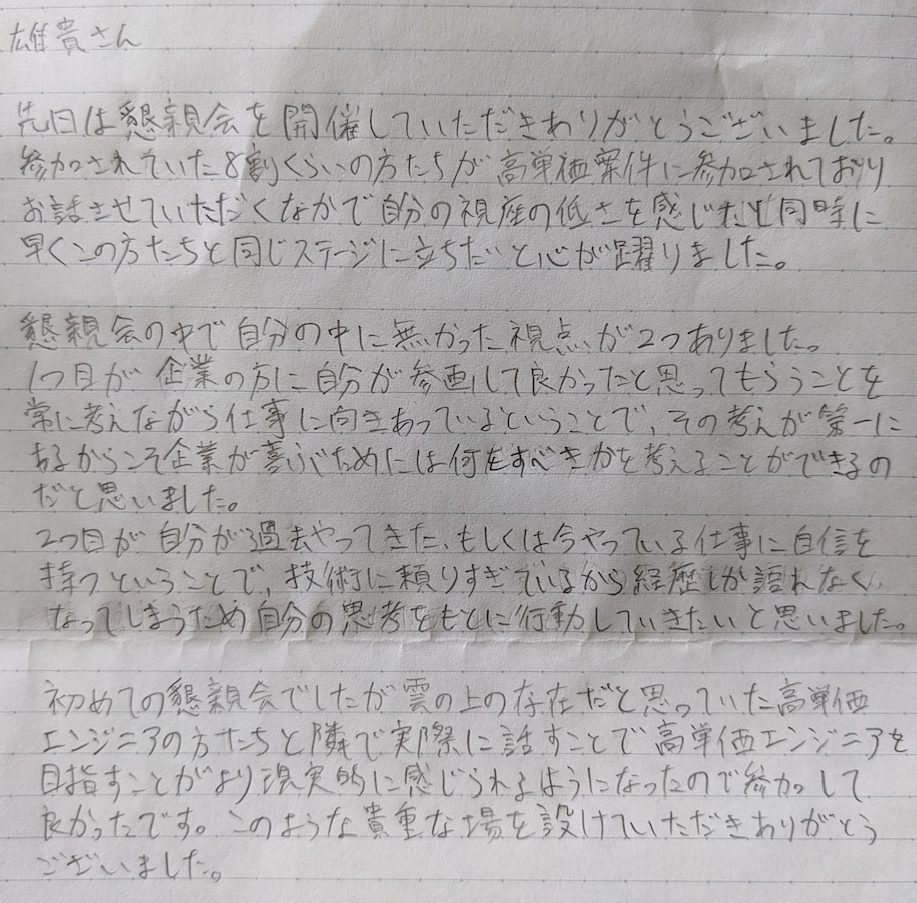 雄貴さん
先日は懇親会を開催していただきありがとうございました。
参加されていた8割くらいの方たちが高単価案件に参加されており
お話させていただくなかで自分の視座の低さを感じたと同時に
早くこの方たちと同じステージに立ちたいと心が躍りました。
懇親会の中で自分の中に無かった視点が2つありました。
1つ目が企業の方に自分が参画して良かったと思ってもらうことを
常に考えながら仕事に向きあっているということで、その考えが第一に
あるからこそ企業が喜ぶためには何をすべきかを考えることができるの
だと思いました。
2つ目が自分が過去やってきた、もしくは今やっている仕事に自信を
持つということで、技術に頼りすぎているから経歴しか語れなく
なってしまうため自分の思考をもとに行動していきたいと思いました。
初めての懇親会でしたが雲の上の存在だと思っていた高単価
エンジニアの方たちと隣で実際に話すことで高単価エンジニアを
目指すことがより現実的に感じられるようになったので参加して
良かったです。このような貴重な場を設けていただきありがとう
ございました。